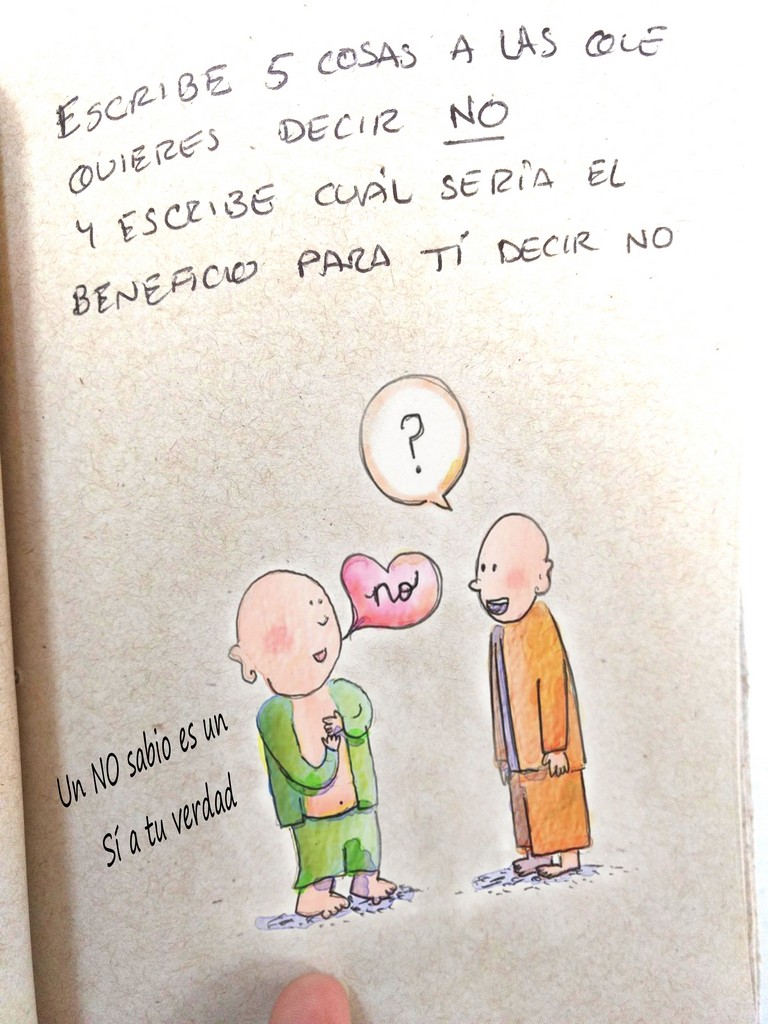 ESCRIBE 5 COSAS A LAS QUE
QUIERES DECIR NO
Y ESCRIBE CUÁL SERÍA EL
BENEFICIO PARA TÍ DECIR NO
?
no
Un NO sabio es un
Sí a tu verdad